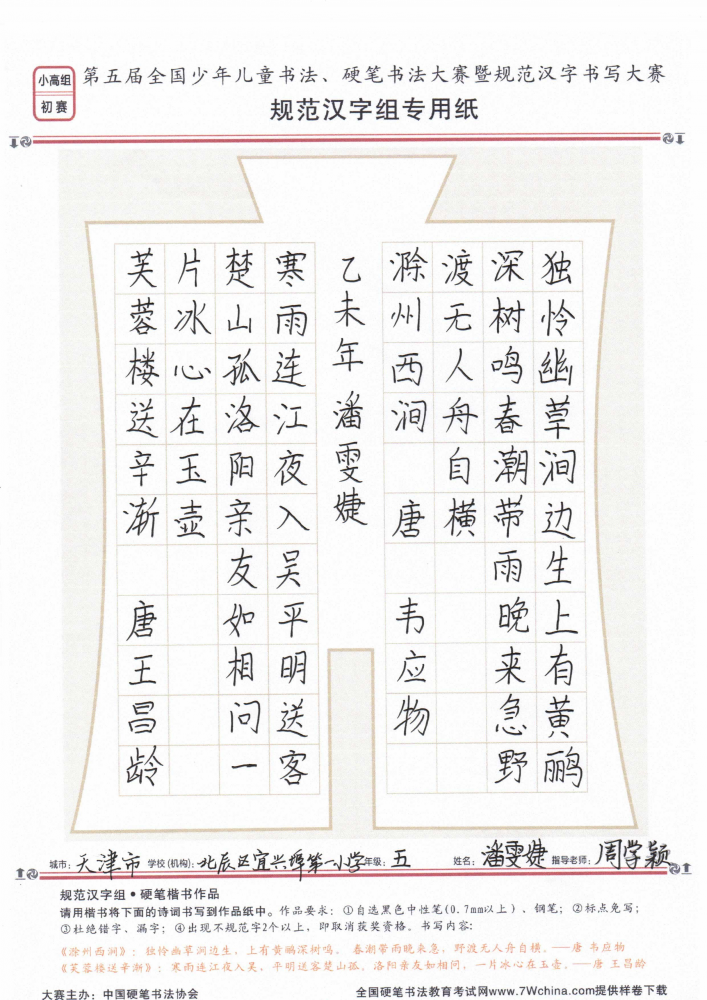 小高组
初赛
第五届全国少年儿童书法、硬笔书法大赛暨规范汉字书写大赛
规范汉字组专用纸
独怜幽草涧边生上有黄鹂
深树鸣春潮带雨晚来急野
渡无人舟自横
滁州西涧 唐 韦应物
乙未年 潘雯婕
寒雨连江夜入吴平明送客
楚山孤洛阳亲友如相问一
片冰心在玉壶
芙蓉楼送辛渐 唐王昌龄
城市：天津市 学校(机构)：北辰区宜兴埠第一小学 年级：五 姓名：潘雯婕 指导老师：周学颖
规范汉字组•硬笔楷书作品
请用楷书将下面的诗词书写到作品纸中。作品要求：①自选黑色中性笔(0.7mm以上)、钢笔；②标点免写；
③杜绝错字、漏字；④出现不规范字2个以上，即取消获奖资格。书写内容：
《滁州西涧》：独怜幽草涧边生，上有黄鹂深树鸣。 春潮带雨晚来急，野渡无人舟自横。——唐 韦应物
《芙蓉楼送辛渐》：寒雨连江夜入吴，平明送客楚山孤。洛阳亲友如相问，一片冰心在玉壶。——唐 王昌龄
大赛主办：中国硬笔书法协会 全国硬笔书法教育考试网www.7Wchina.com提供样卷下载